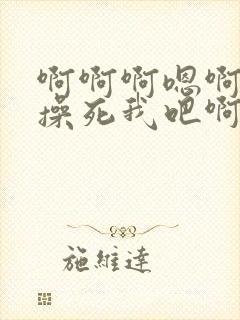 啊啊啊嗯啊
操死我吧啊
施維達